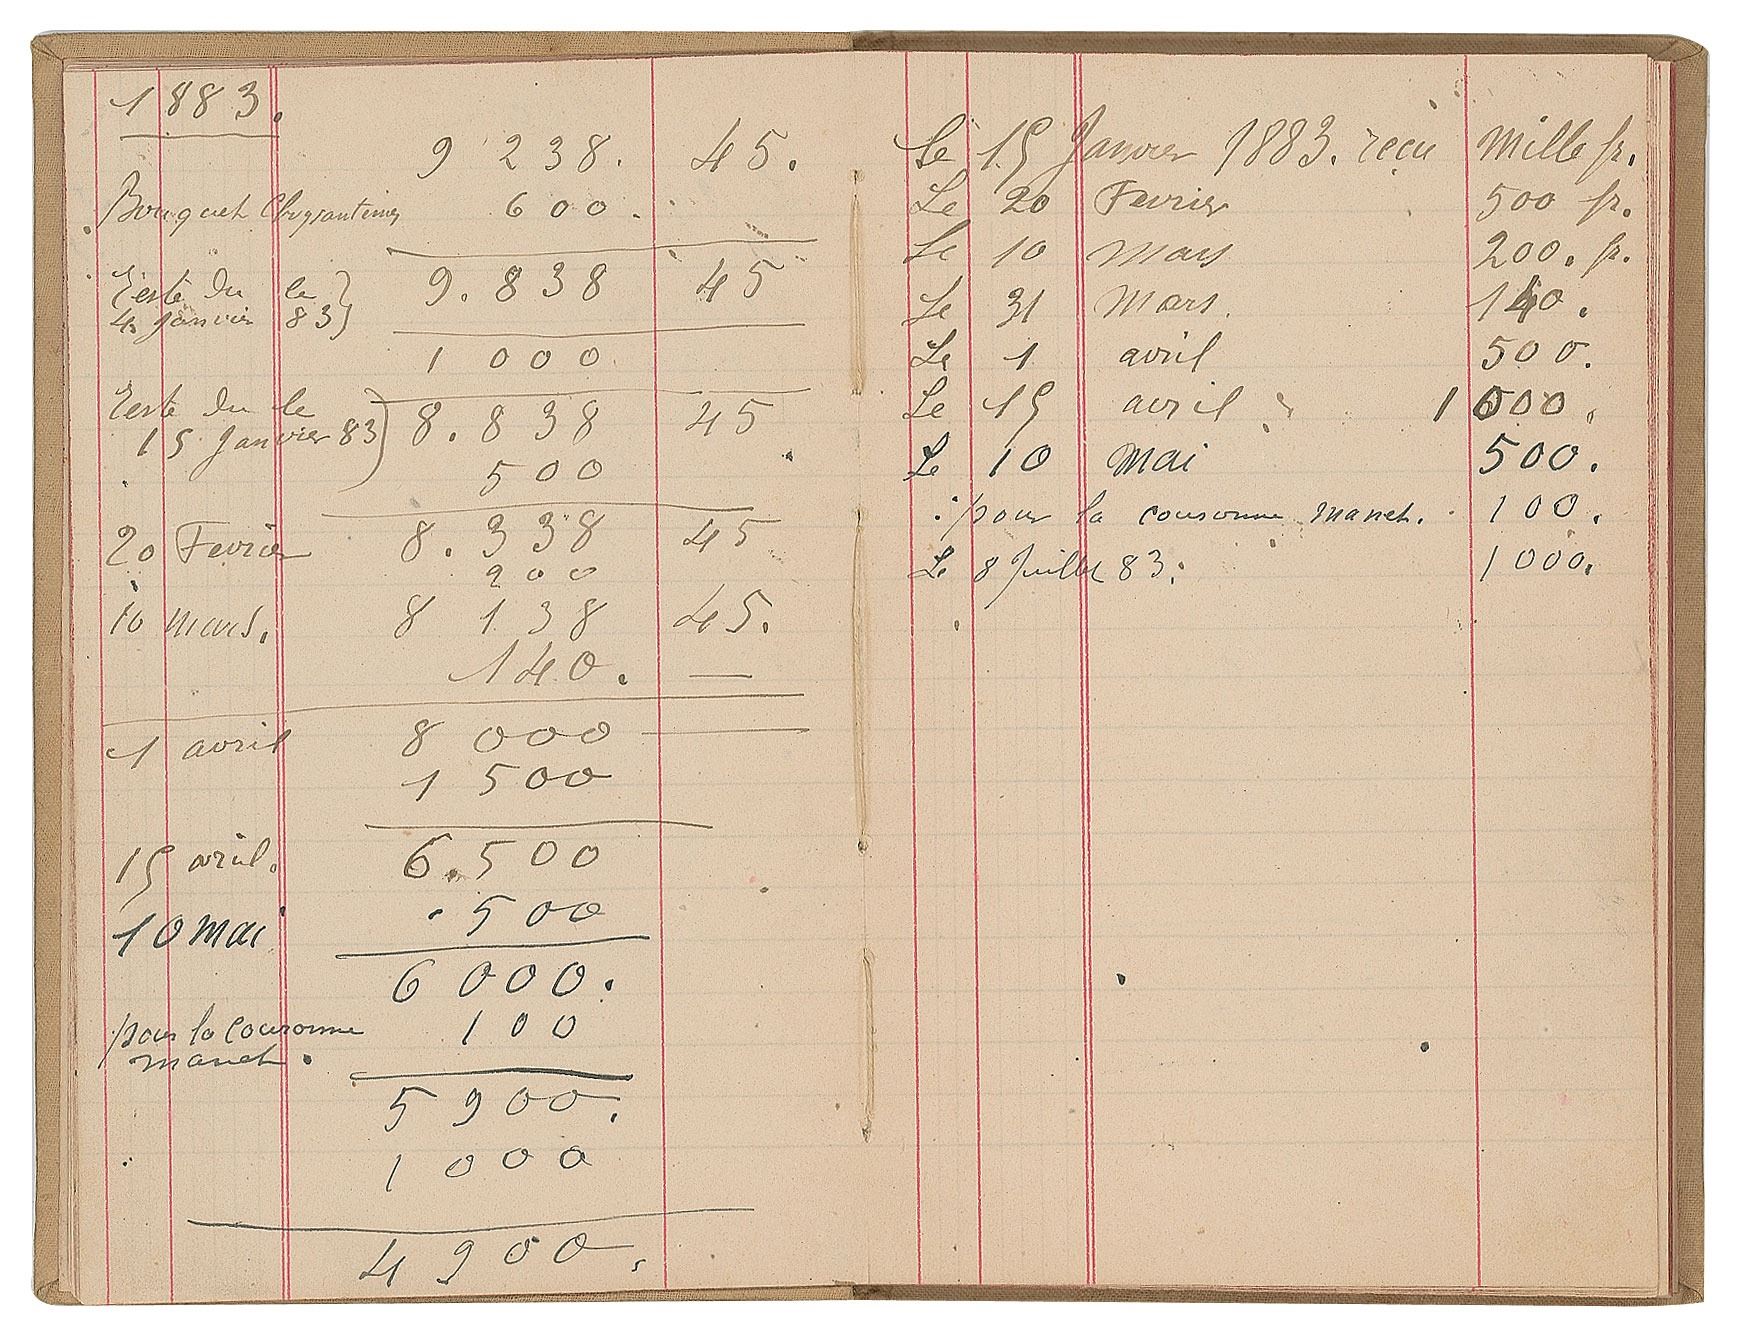 1883.
9 238. 45.
Bouquet Chrysantemes 600.
9.838 45
reste du le
4 Janvier 83
1 000
reste du le
15 Janvier 83 8.838 45
500
20 Fevrier 8.338 45
200
10 mars. 8 138 45.
140. —
1 avril 8 000 —
1 500
15 avril. 6.500
10 Mai 500
6 000.
pour la couronne 100
manet.
5 900.
1 000
4 900.
Le 15 Janvier 1883. recu Mille fr.
Le 20 Fevrier 500 fr.
Le 10 Mars 200. fr.
Le 31 Mars. 140.
Le 1 avril 500.
Le 15 avril 1000.
Le 10 Mai 500.
pour la couronne manet. 100.
Le 8 Juillet 83. 1000.